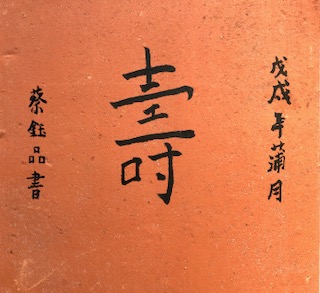 戊戌年蒲月
壽
蔡鈺品書